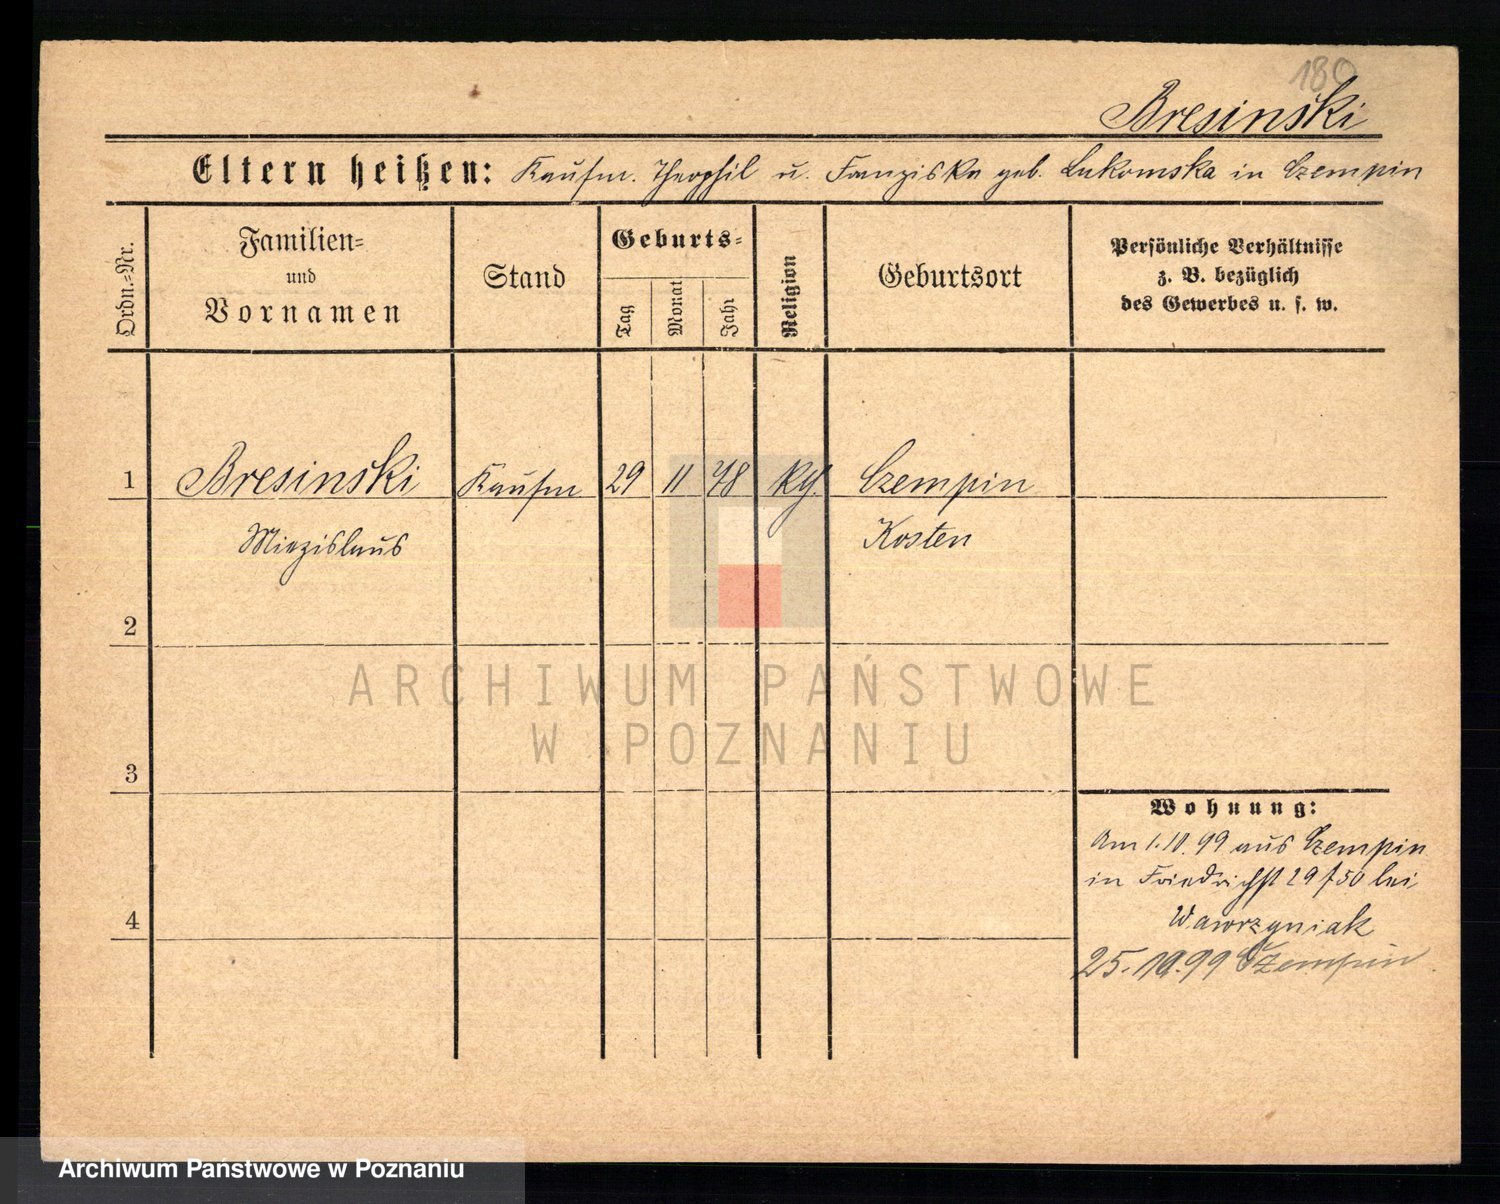 180
Bresinski
Eltern heißen: Kaufm. Theophil u. Franziska geb. Lukomska in Czempin
Ordn.-Nr.
Familien-
und
Vornamen
Stand
Geburts-
Tag
Monat
Jahr
Religion
Geburtsort
Persönliche Verhältnisse
z. B. bezüglich
des Gewerbes u. s. w.
1 Bresinski Kaufm 29 11 78 Czempin
Miezislaus Kosten
2
3
4
ARCHIWUM PAŃSTWOWE
W POZNANIU
Wohnung:
Am 1.10.99 aus Czempin
in Friedrichst 29 bei
Wawrzyniak
25.10.99 Czempin
Archiwum Państwowe w Poznaniu